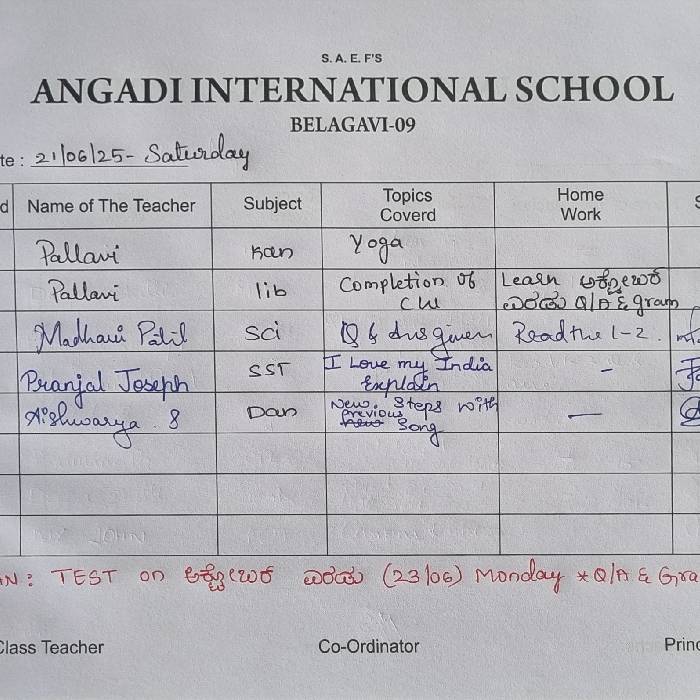 S. A. E. F'S
ANGADI INTERNATIONAL SCHOOL
BELAGAVI-09
te : 21/06/25- Saturday
d Name of The Teacher Subject Topics Coverd Home Work S
Pallavi Kan Yoga
Pallavi lib Completion of CW Learn ಅಕ್ಟೋಬರ್ ಎರಡು Q/A & gram
Madhavi Patil Sci Q & Ans given Read the 1-2.
Pranjal Joseph SST I Love my India Explain -
Aishwarya. S Dan New. Steps with previous Song —
AN: TEST on ಅಕ್ಟೋಬರ್ ಎರಡು (23/06) Monday * Q/A & Gra
Class Teacher Co-Ordinator Princ